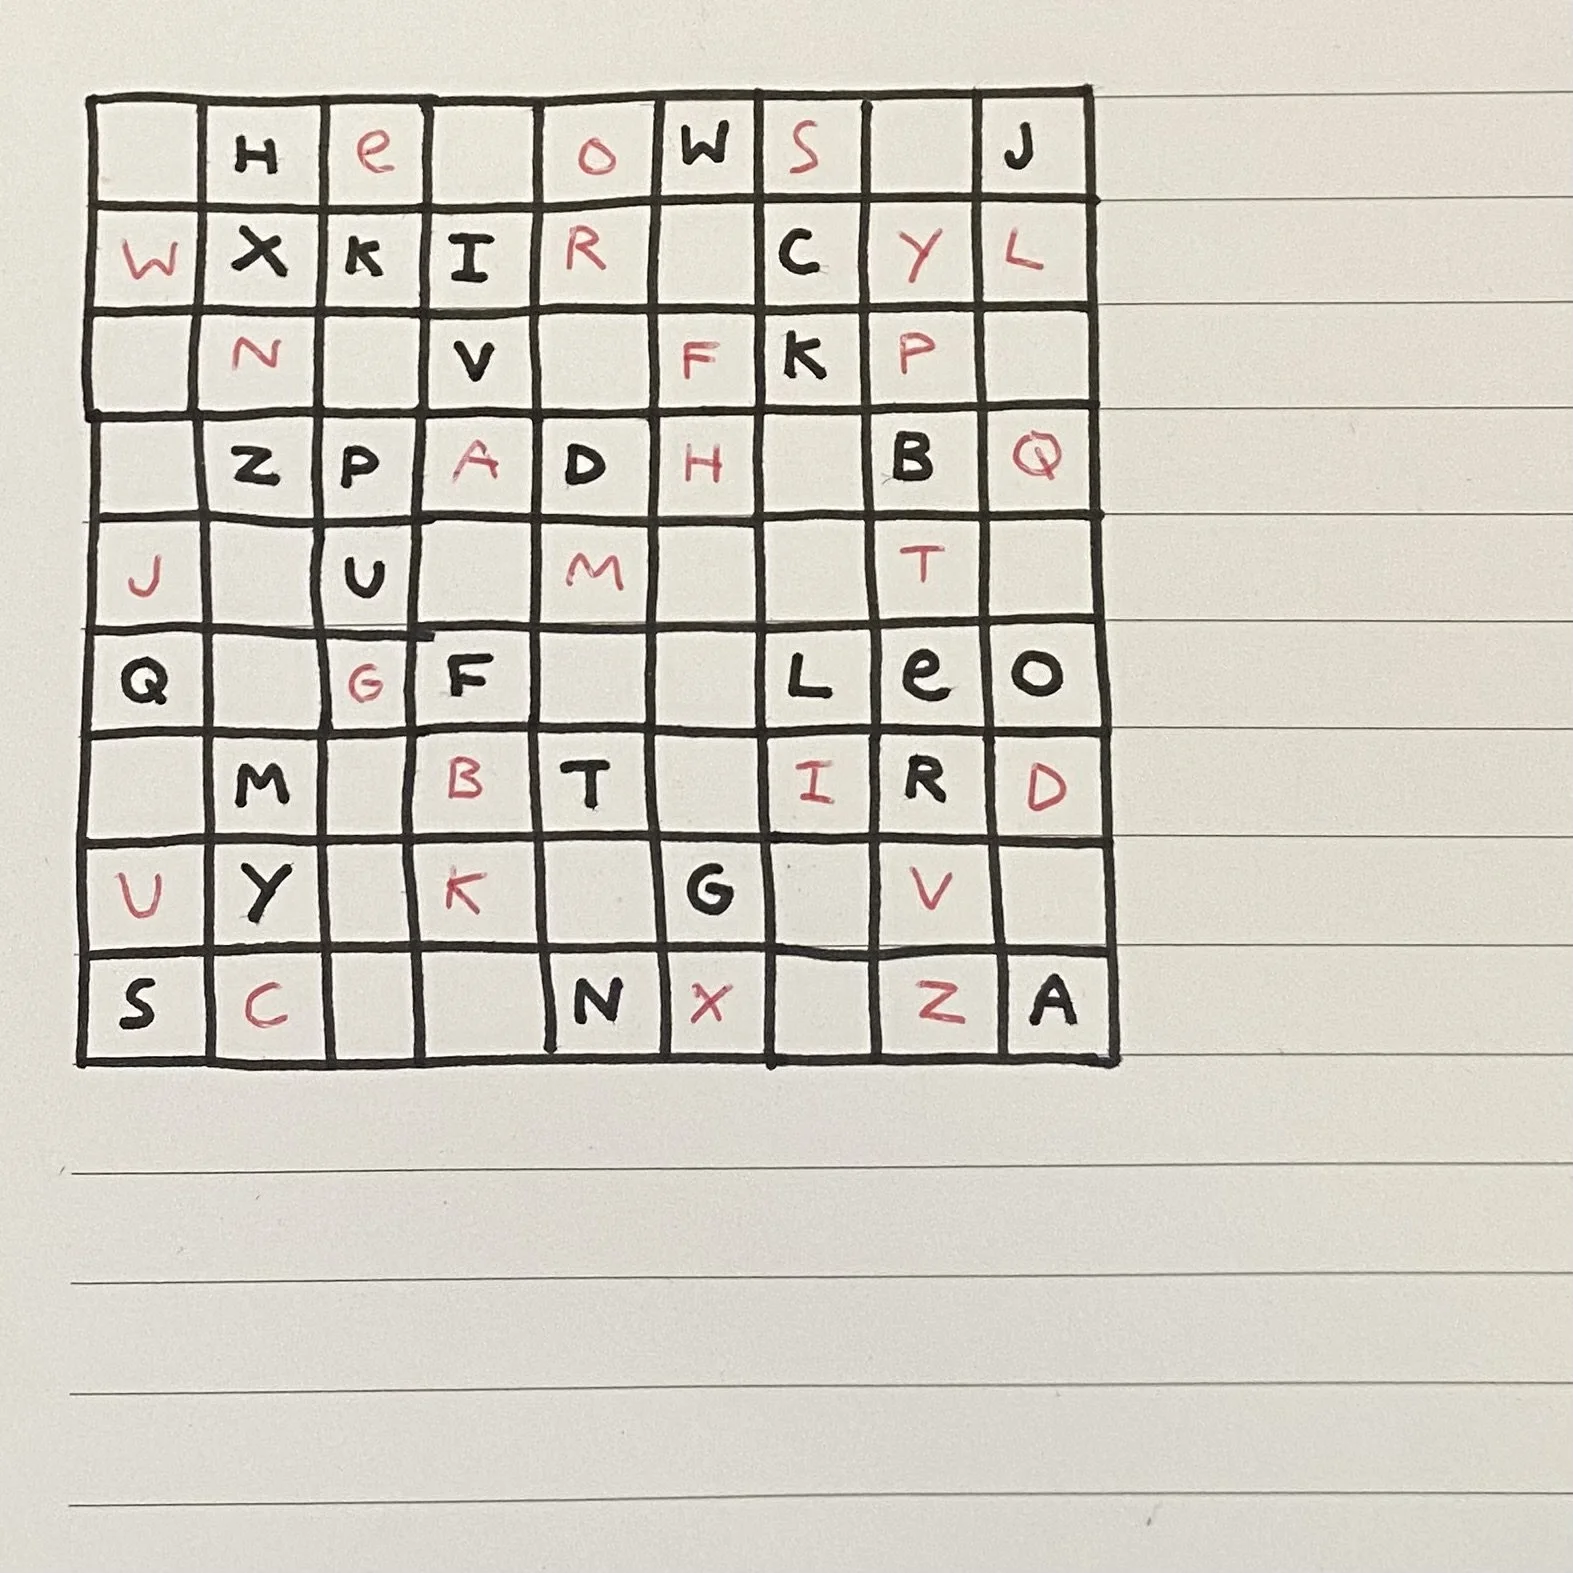 H e O W S J
W X K I R C Y L
N V F K P
Z P A D H B Q
J U M T
Q G F L e O
M B T I R D
U Y K G V
S C N X Z A